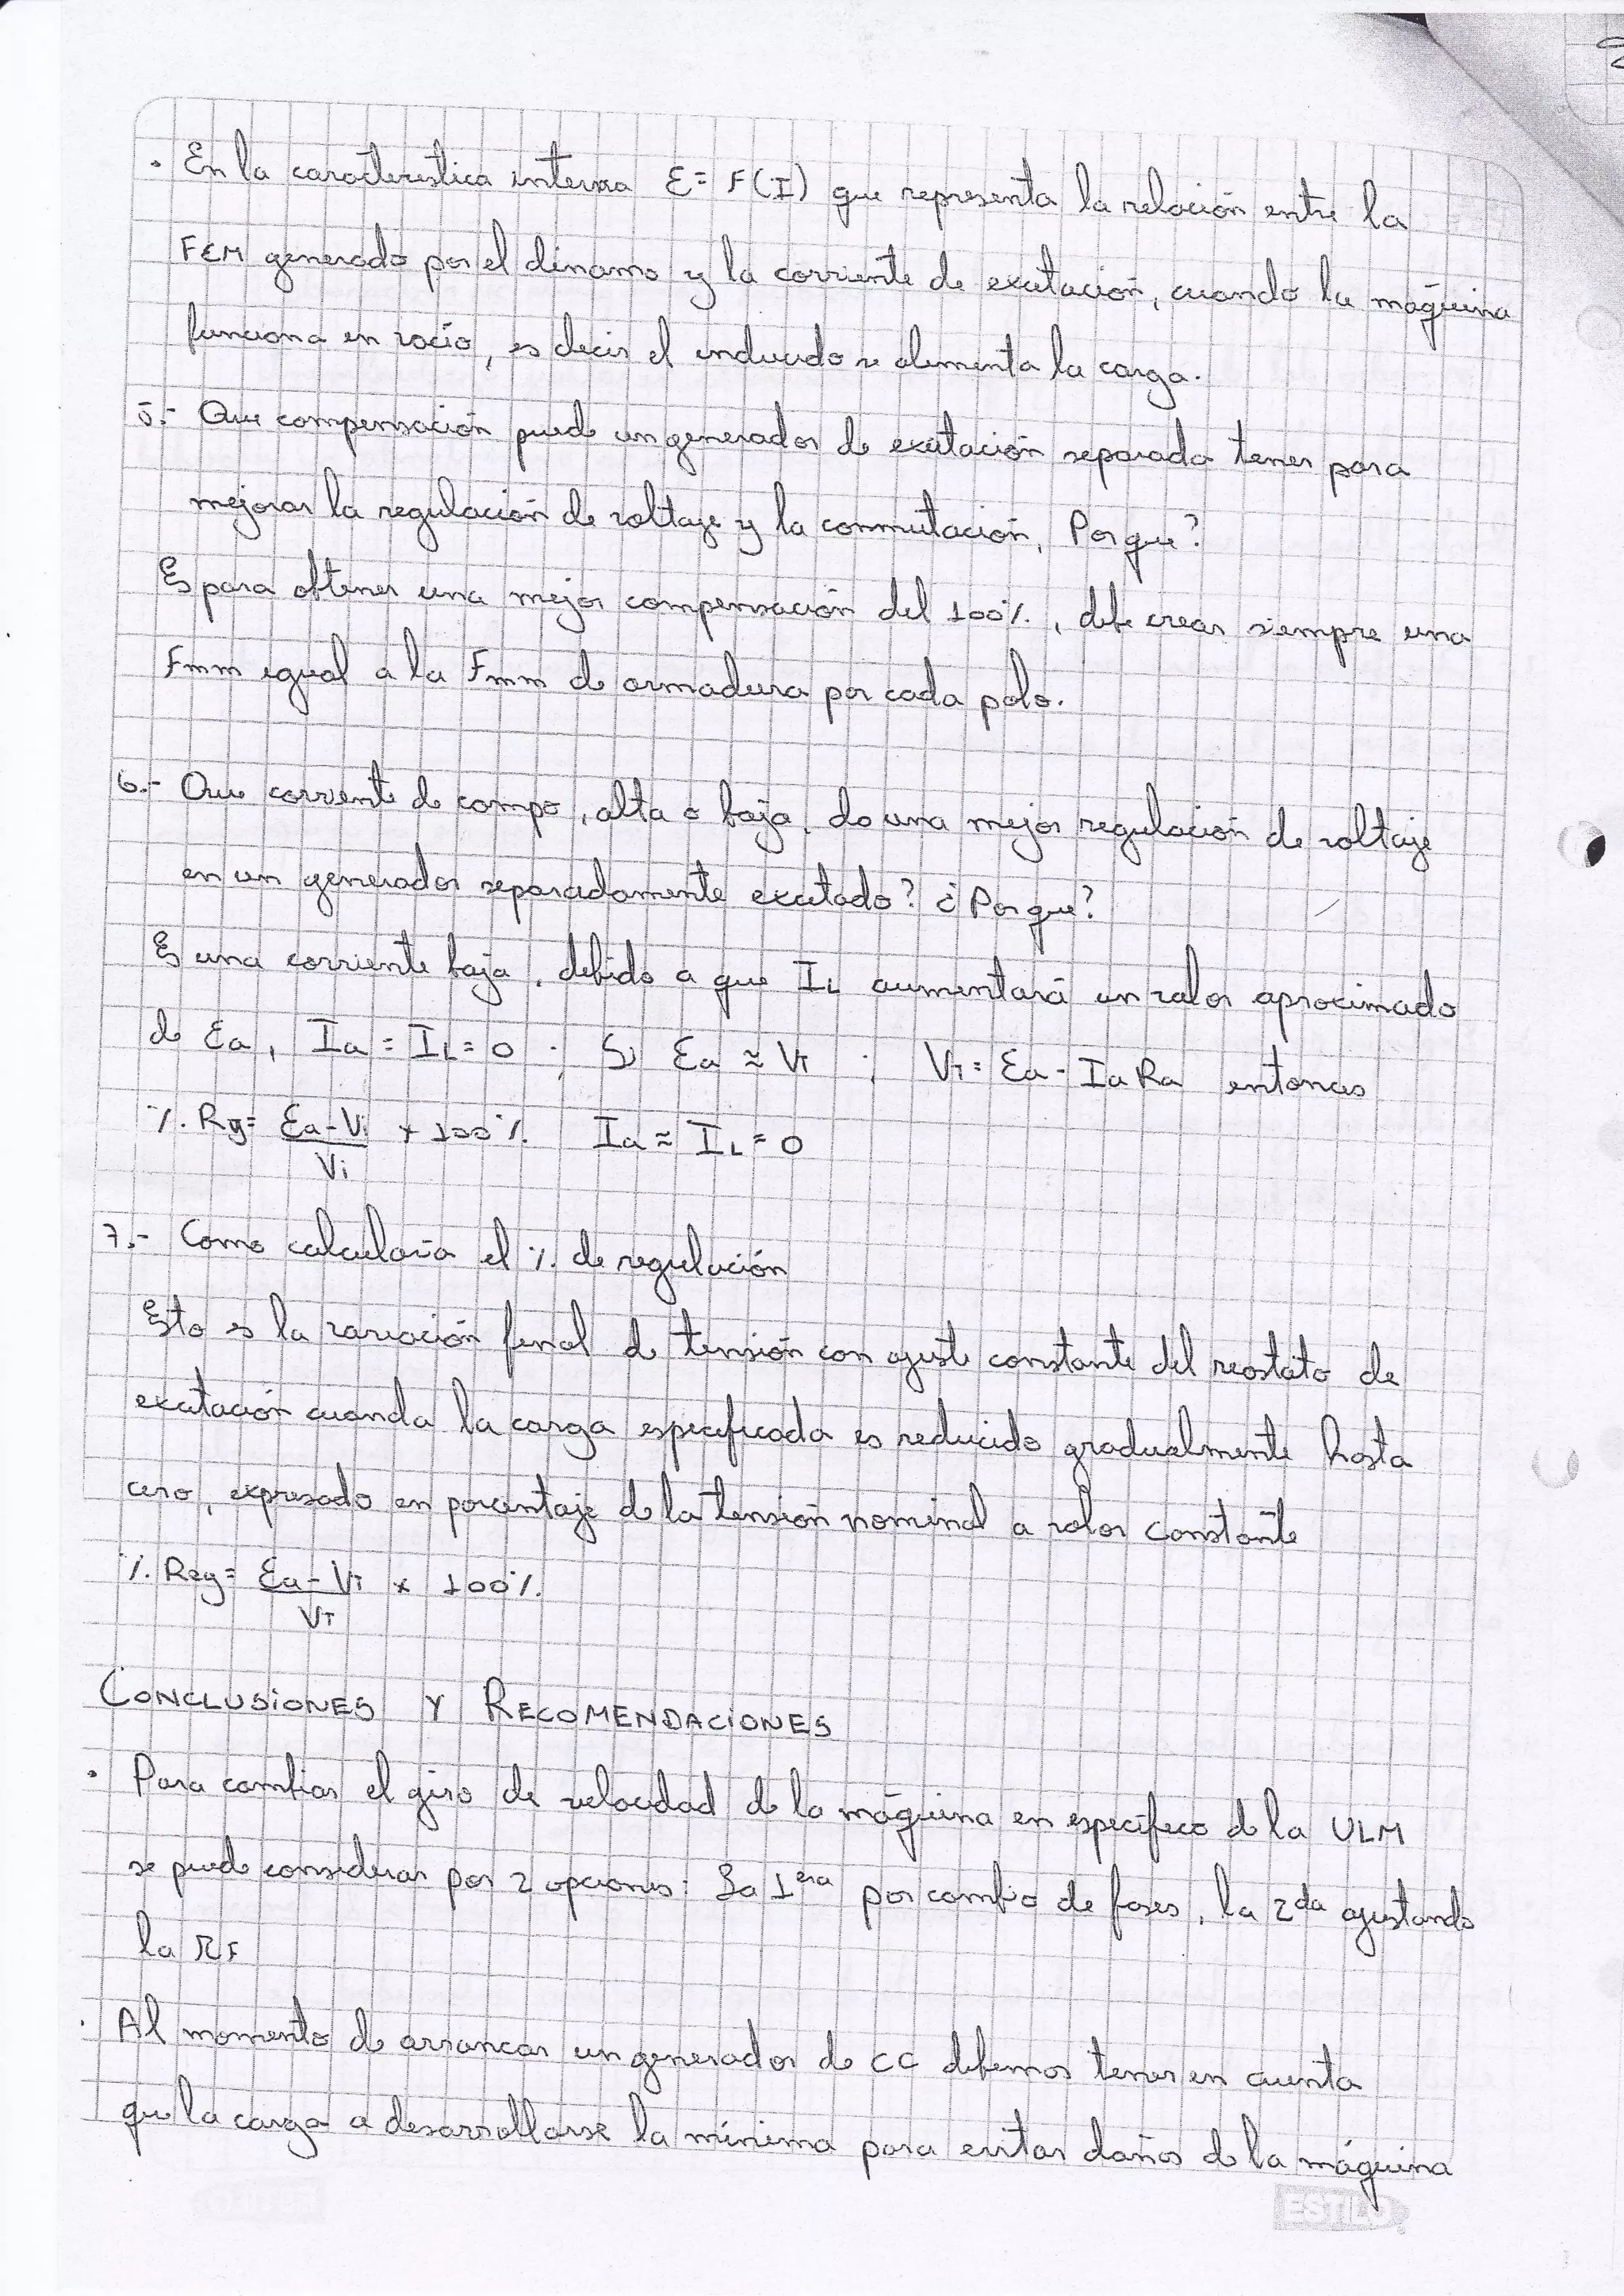 • En la característica interna E = F(I) que representa la relación entre la
FEM generado por el dinamo y la corriente de exitación, cuando la máquina
funciona en vacío, es decir el inducido se alimenta la carga.
5.- Que compensación puede un generador de exitación separada tener para
mejorar la regulación de voltaje y la conmutación, Por que?
Es para obtener una mejor compensación del 100%, debe crear siempre una
Fmm igual a la Fmm de armadura por cada polo.
6.- Que corriente de campo, alta o baja, da una mejor regulación de voltaje
en un generador separadamente exitado? ¿Por que?
Es una corriente baja, debido a que IL aumentará un valor aproximado
de Ea, Ia = IL = 0 ; Si Ea ≈ VT ; VT = Ea - Ia Ra entonces
% Rg = Ea - Vi / Vi × 100% Ia ≈ IL = 0
7.- Como calcularía el % de regulación
Esto es la variación final de tensión con ajuste constante del reostato de
exitación cuanda la carga especificada es reducido gradualmente hasta
cero, expresado en porcentaje de la tensión nominal a valor constante
% Reg = Ea - VT / VT × 100%
CONCLUSIONES Y RECOMENDACIONES
• Para cambiar el giro de velocidad de la máquina en específico de la ULM
se puede considerar por 2 opciones: La 1era por cambio de fases, la 2da ajustando
la RF
• Al momento de arrancar un generador de CC debemos tener en cuenta
que la carga a desarrollarse la mínima para evitar daños de la máquina
ESTILO